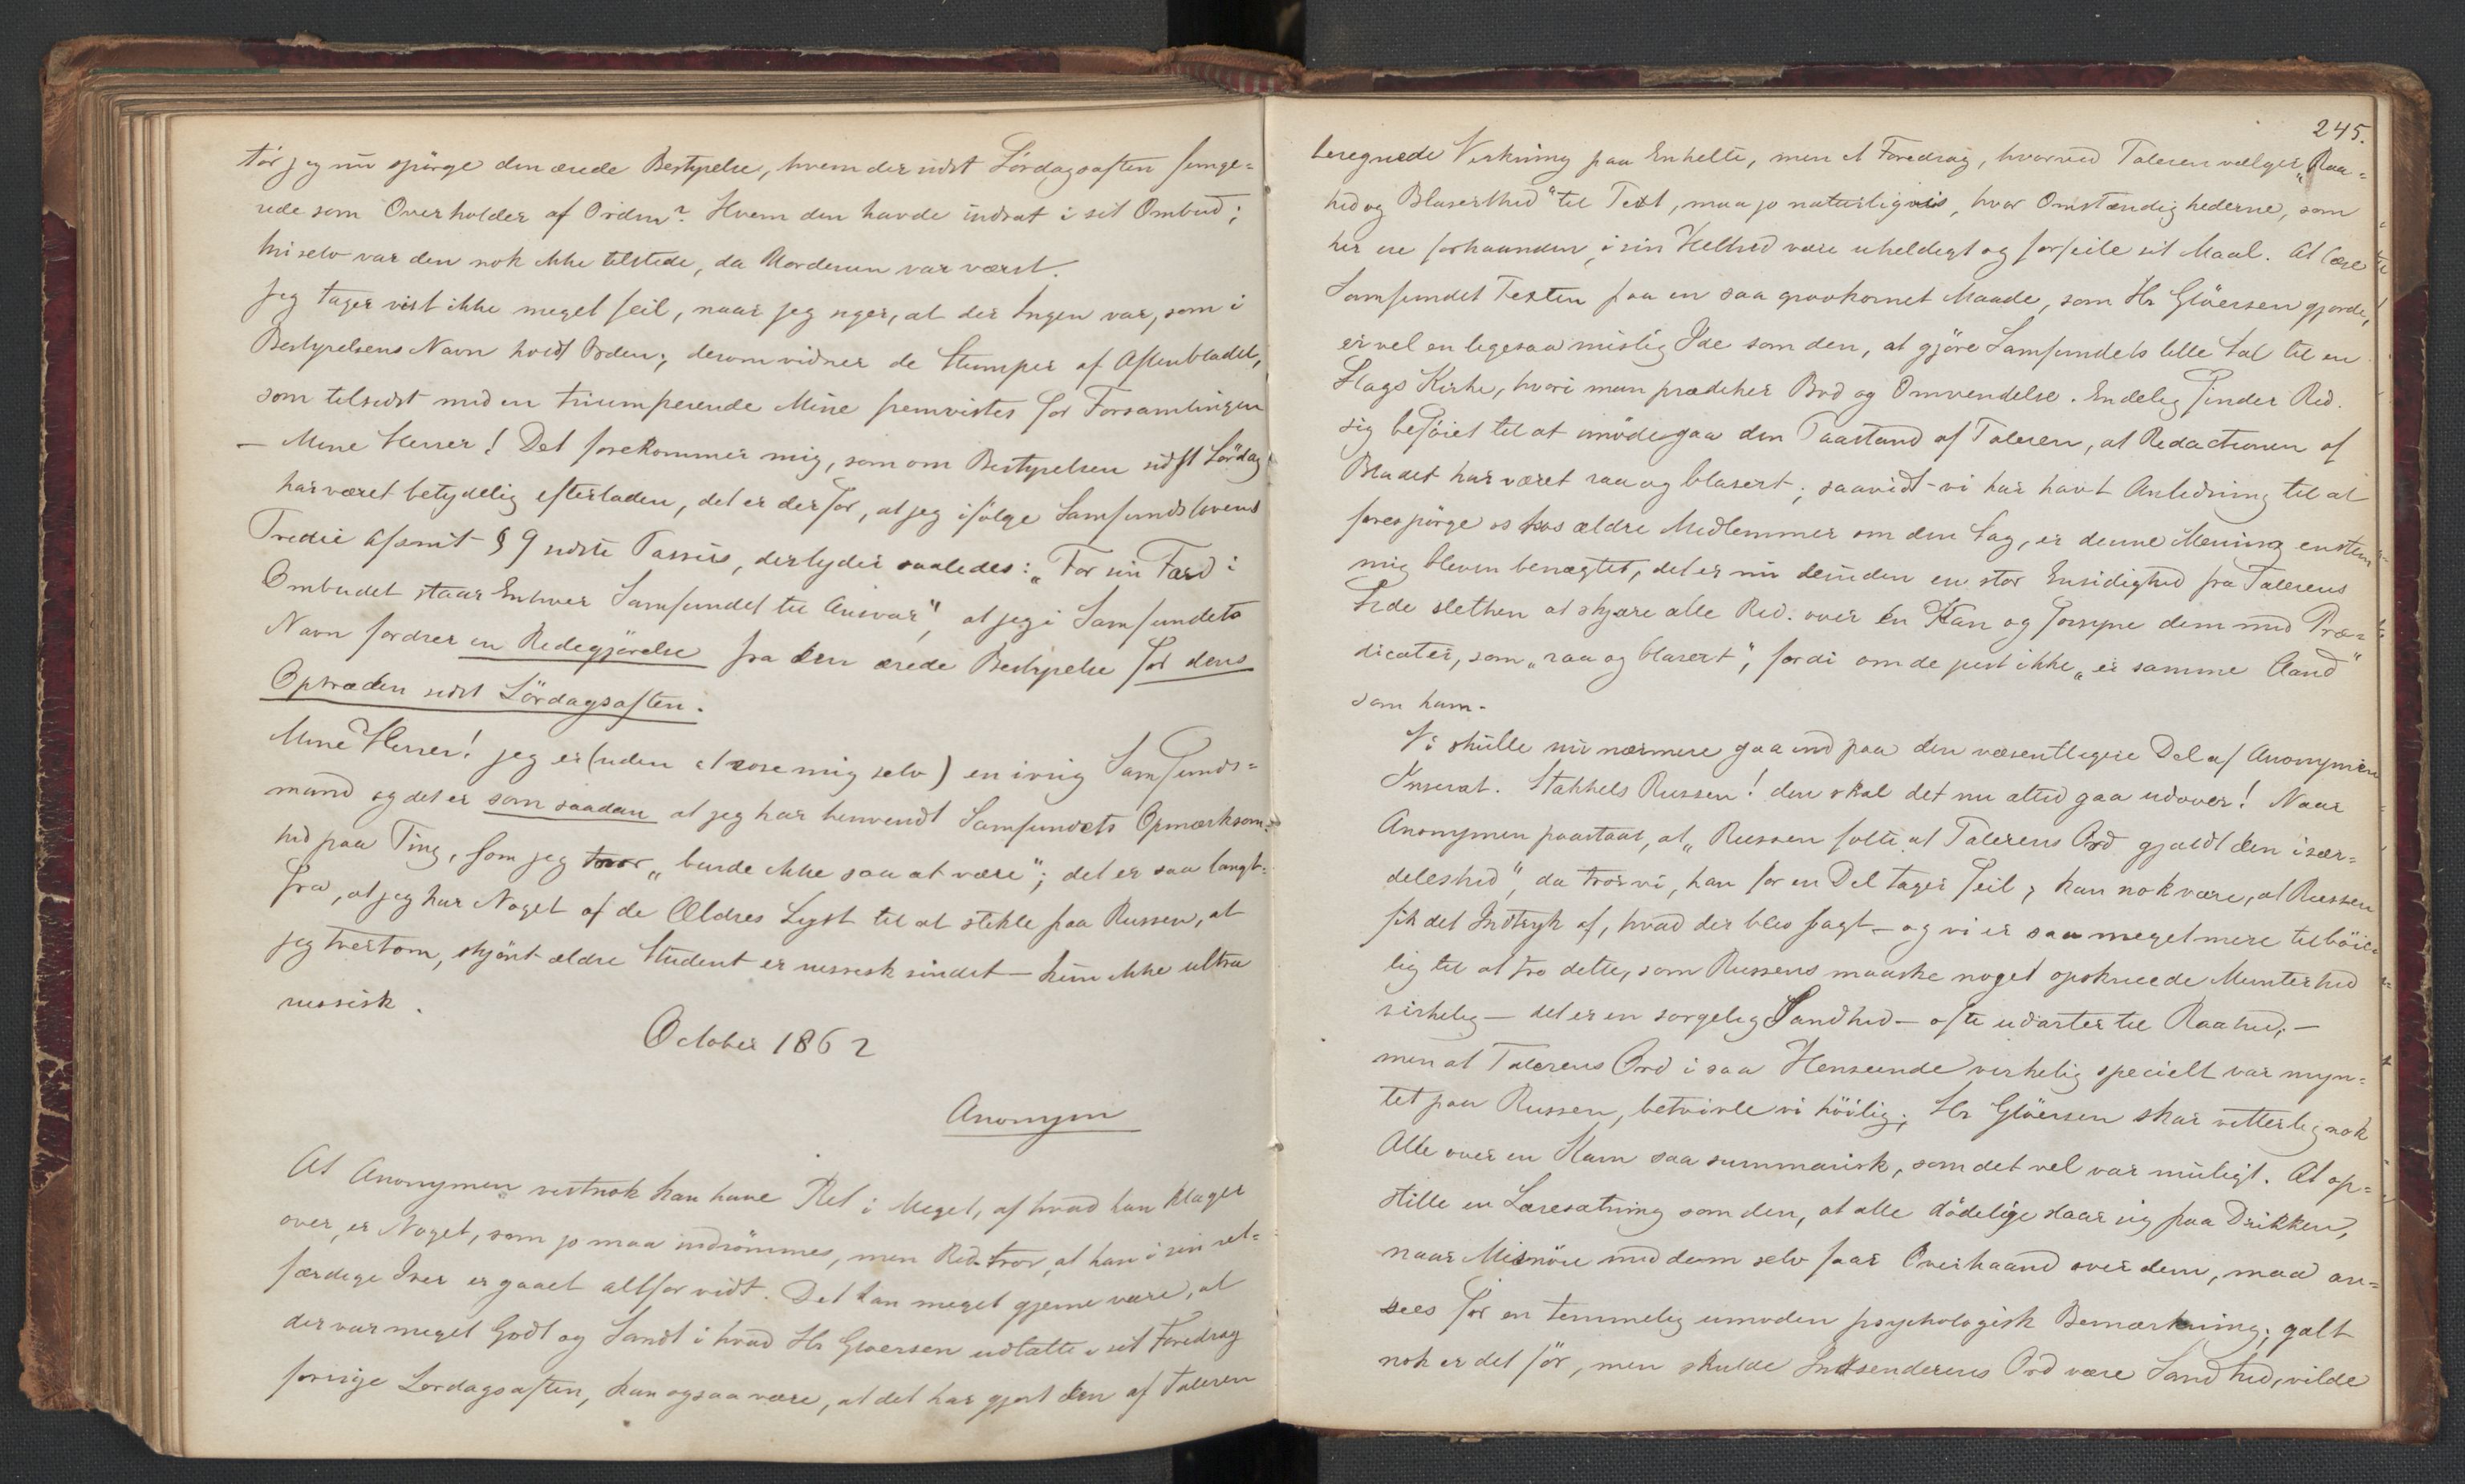 tör jeg nu spörge den ærede Bestyrelse, hvem der sidst Lördagsaften funge-
rede som Overholder af Orden? Hvem den havde indsat i sit Ombud;
thi selv var den nok ikke tilstede, da Uordenen var værst.
Jeg tager vist ikke meget feil, naar jeg siger, at der Ingen var, som i
Bestyrelsens Navn holdt Orden; derom vidner de Stumper af Aftenbladet,
som tilsidst med en triumferende Mine fremvistes for Forsamlingen
– Mine Herrer! Det forekommer mig, som om Bestyrelsen sidst Lördag
har været betydelig efterladen, det er derfor, at jeg ifölge Samfundslovens
Tredie Afsnit § 9 sidste Passus, der lyder saaledes: „For sin Færd i
Ombudet staar Enhver Samfundet til Ansvar", at jeg i Samfundets
Navn fordrer en Redegjörelse fra den ærede Bestyrelse for dens
Optræden sidst Lördagsaften.
Mine Herrer! jeg er (uden at rose mig selv) en ivrig Samfunds-
mand og det er som saadan at jeg har henvendt Samfundets Opmærksom-
hed paa Ting, som jeg troer „burde ikke saa at være"; det er saa langt-
fra, at jeg har Noget af de Ældres Lyst til at stikle paa Russen, at
jeg tvertom, skjönt ældre Student er russisk sindet – kun ikke ultra
russisk.
October 1862
Anonym
At Anonymen vistnok kan have Ret i Meget, af hvad han klager
over, er Noget, som jo maa indrömmes, men Red. tror, at han i sin ret-
færdige Iver er gaaet altfor vidt. Det kan meget gjerne være, at
der var meget Godt og Sandt i hvad Hr Gloersen udtalte i sit Foredrag
forrige Lordagsaften, kan ogsaa være, at det har gjort den af Taleren
245.
beregnede Virkning paa Enkelte, men et Foredrag, hvorved Taleren vælger „Raa-
hed og Blaserthed" til Text, maa jo naturligvis, hvor Omstændighederne, som
her ere forhaanden, i sin Helhed være uheldigt og forfeile sit Maal. At læse
Samfundet Texten paa en saa grovkornet Maade, som Hr Glöersen gjorde,
er vel en ligesaa mislig Ide som den, at gjöre Samfundets lille Sal til en
Slags Kirke, hvori man prædiker Bod og Omvendelse. Endelig finder Red.
sig beföiet til at imödegaa den Paastand af Taleren, at Redactionen af
Bladet har været raa og blasert; saavidt vi har havt Anledning til at
forespörge os hos ældre Medlemmer om den Sag, er denne Mening enstem-
mig bleven benægtet, det er nu desuden en stor Ensidighed fra Talerens
Side slethen at skjære alle Red. over én Kam og forsyne dem med Præ-
dicater, som „raa og blasert", fordi om de just ikke „er samme Aand"
som ham.
Vi skulle nu nærmere gaa ind paa den væsentligere Del af Anonymen
Inserat. Stakkels Russen! den skal det nu altid gaa udover! Naar
Anonymen paastaar, at „Russen følte at Talerens Ord gjaldt den især-
deleshed", da tror vi, han for en Del tager feil; kan nok være, at Russen
fik det Indtryk af, hvad der blev sagt – og vi er saa meget mere tilböie-
lig til at tro dette, som Russens maaske noget opskruede Munterhed
virkelig – det er en sorgelig Sandhed – ofte udarter til Raahed; –
men at Talerens Ord i saa Henseende virkelig specielt var myn-
tet paa Russen, betvivle vi höilig; Hr Glöersen skar vitterlig nok
Alle over en Kam saa summarisk, som det vel var muligt. At op-
stille en Læresætning som den, at alle dödelige slaar sig paa Drikken,
naar Misnöie med dem selv faar Overhaand over dem, maa an-
sees for en temmelig umoden psychologisk Bemærkning; galt
nok er det för, men skulde Indsenderens Ord være Sandhed, vilde